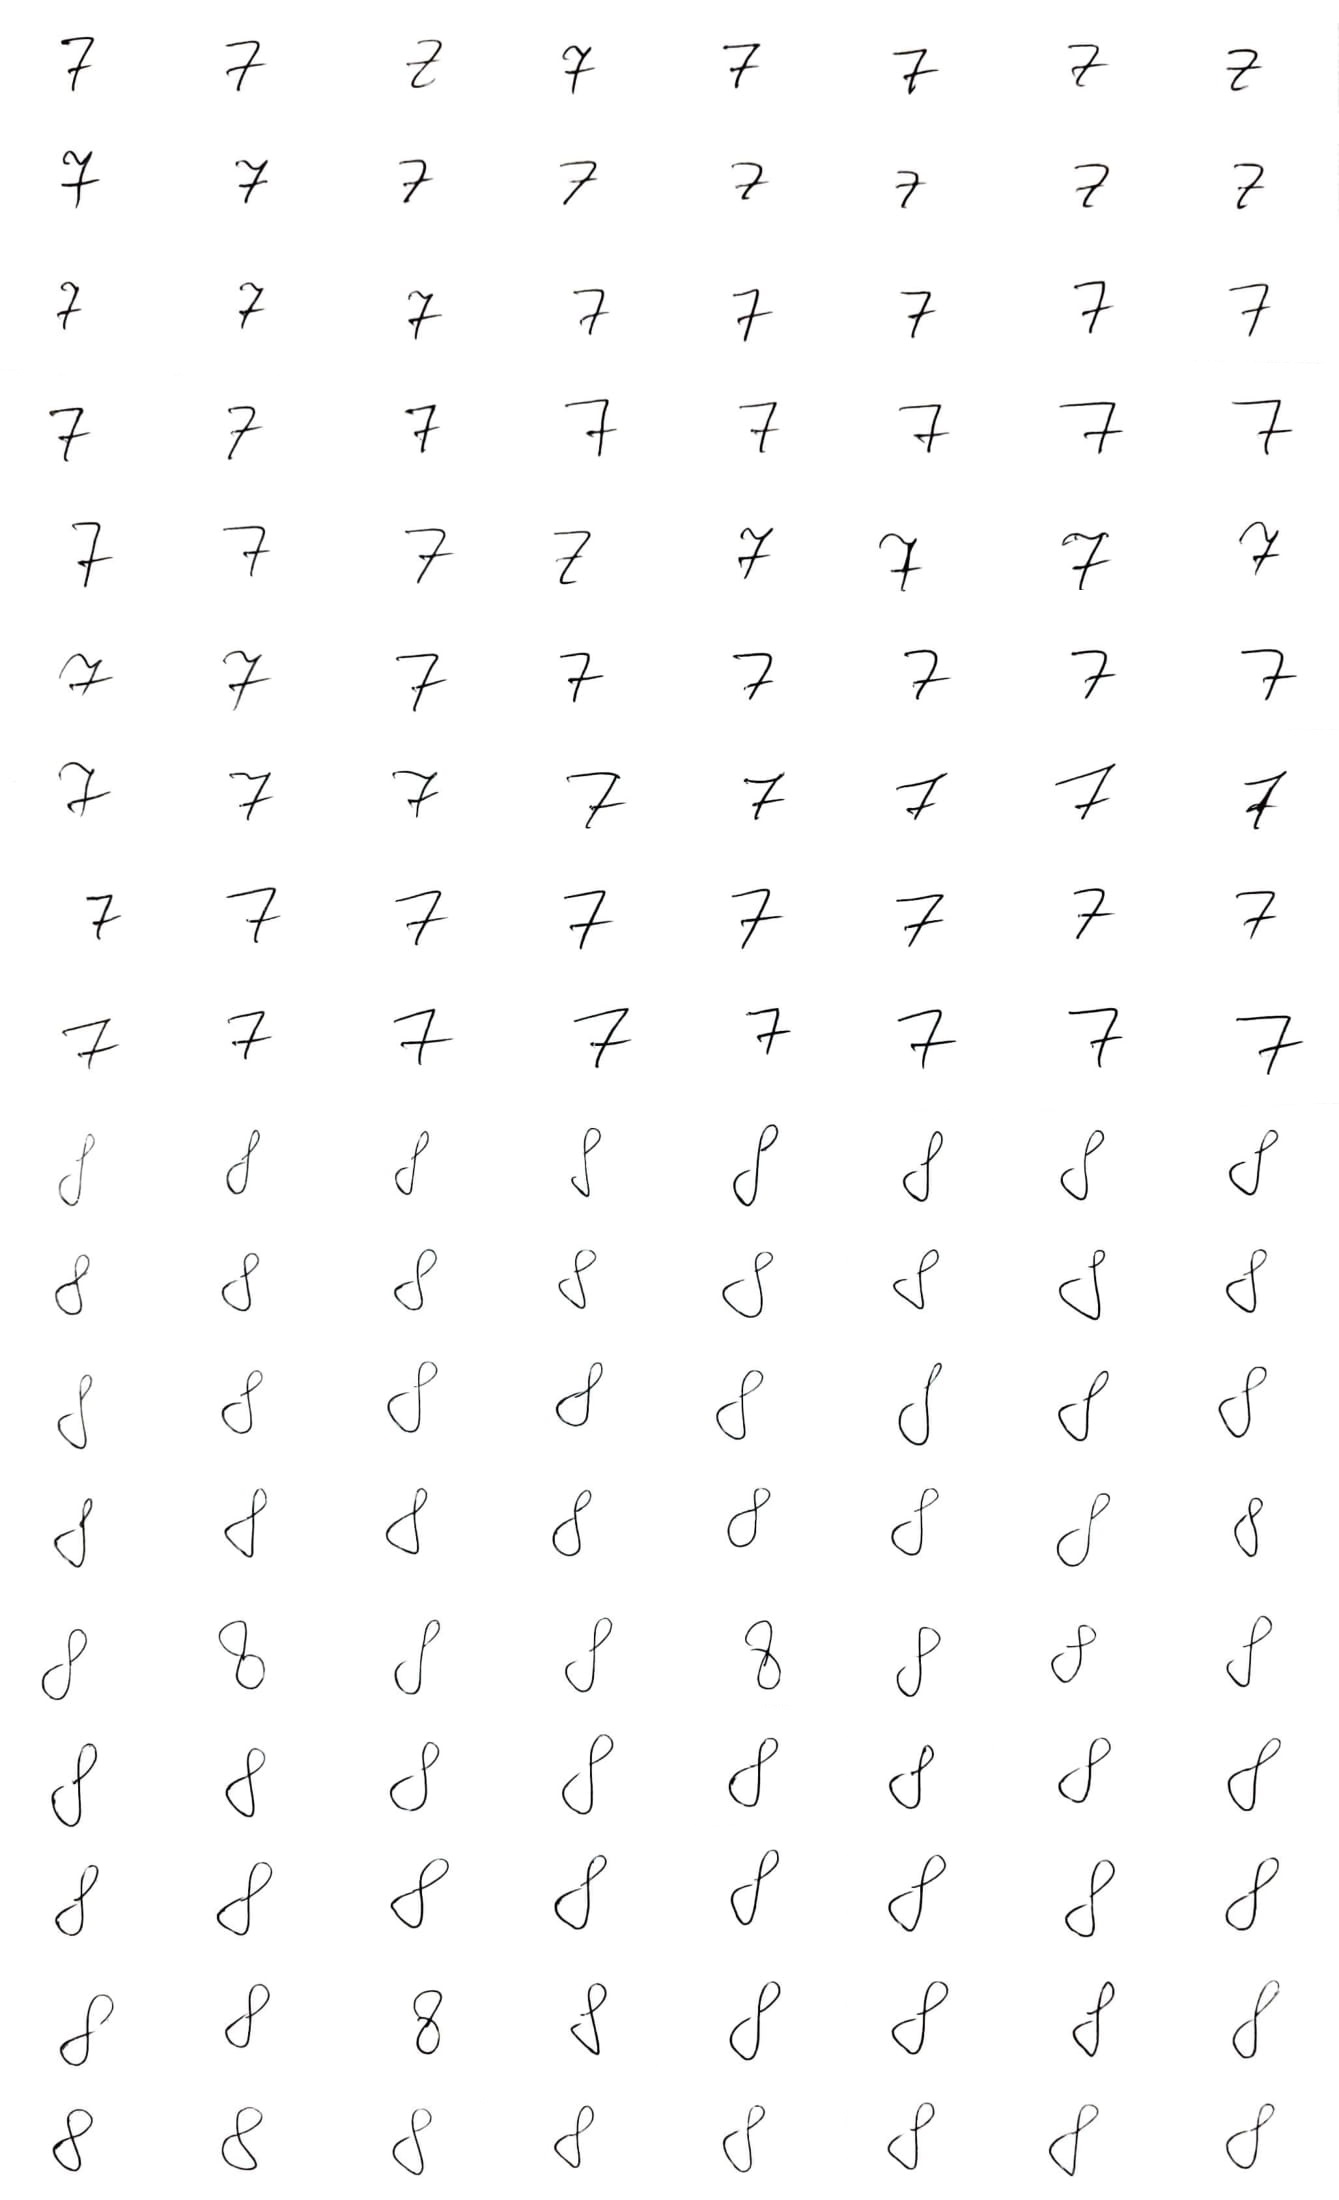 7 7 7 7 7 7 7 7
7 7 7 7 7 7 7 7
7 7 7 7 7 7 7 7
7 7 7 7 7 7 7 7
7 7 7 7 7 7 7 7
7 7 7 7 7 7 7 7
7 7 7 7 7 7 7 7
7 7 7 7 7 7 7 7
7 7 7 7 7 7 7 7
8 8 8 8 8 8 8 8
8 8 8 8 8 8 8 8
8 8 8 8 8 8 8 8
8 8 8 8 8 8 8 8
8 8 8 8 8 8 8 8
8 8 8 8 8 8 8 8
8 8 8 8 8 8 8 8
8 8 8 8 8 8 8 8
8 8 8 8 8 8 8 8